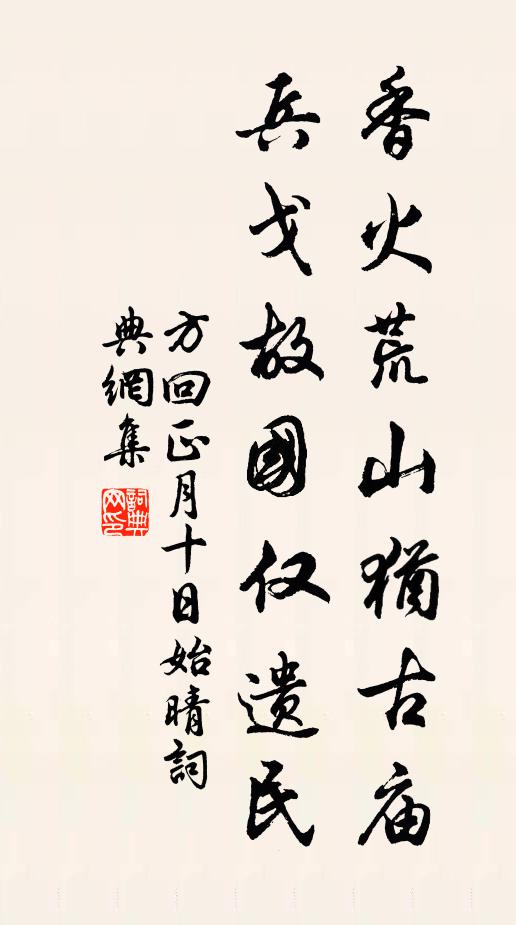 香火荒山犹古庙
兵戈故國仅遺民
方回正月十日始晴詞
典網集
詞典网印